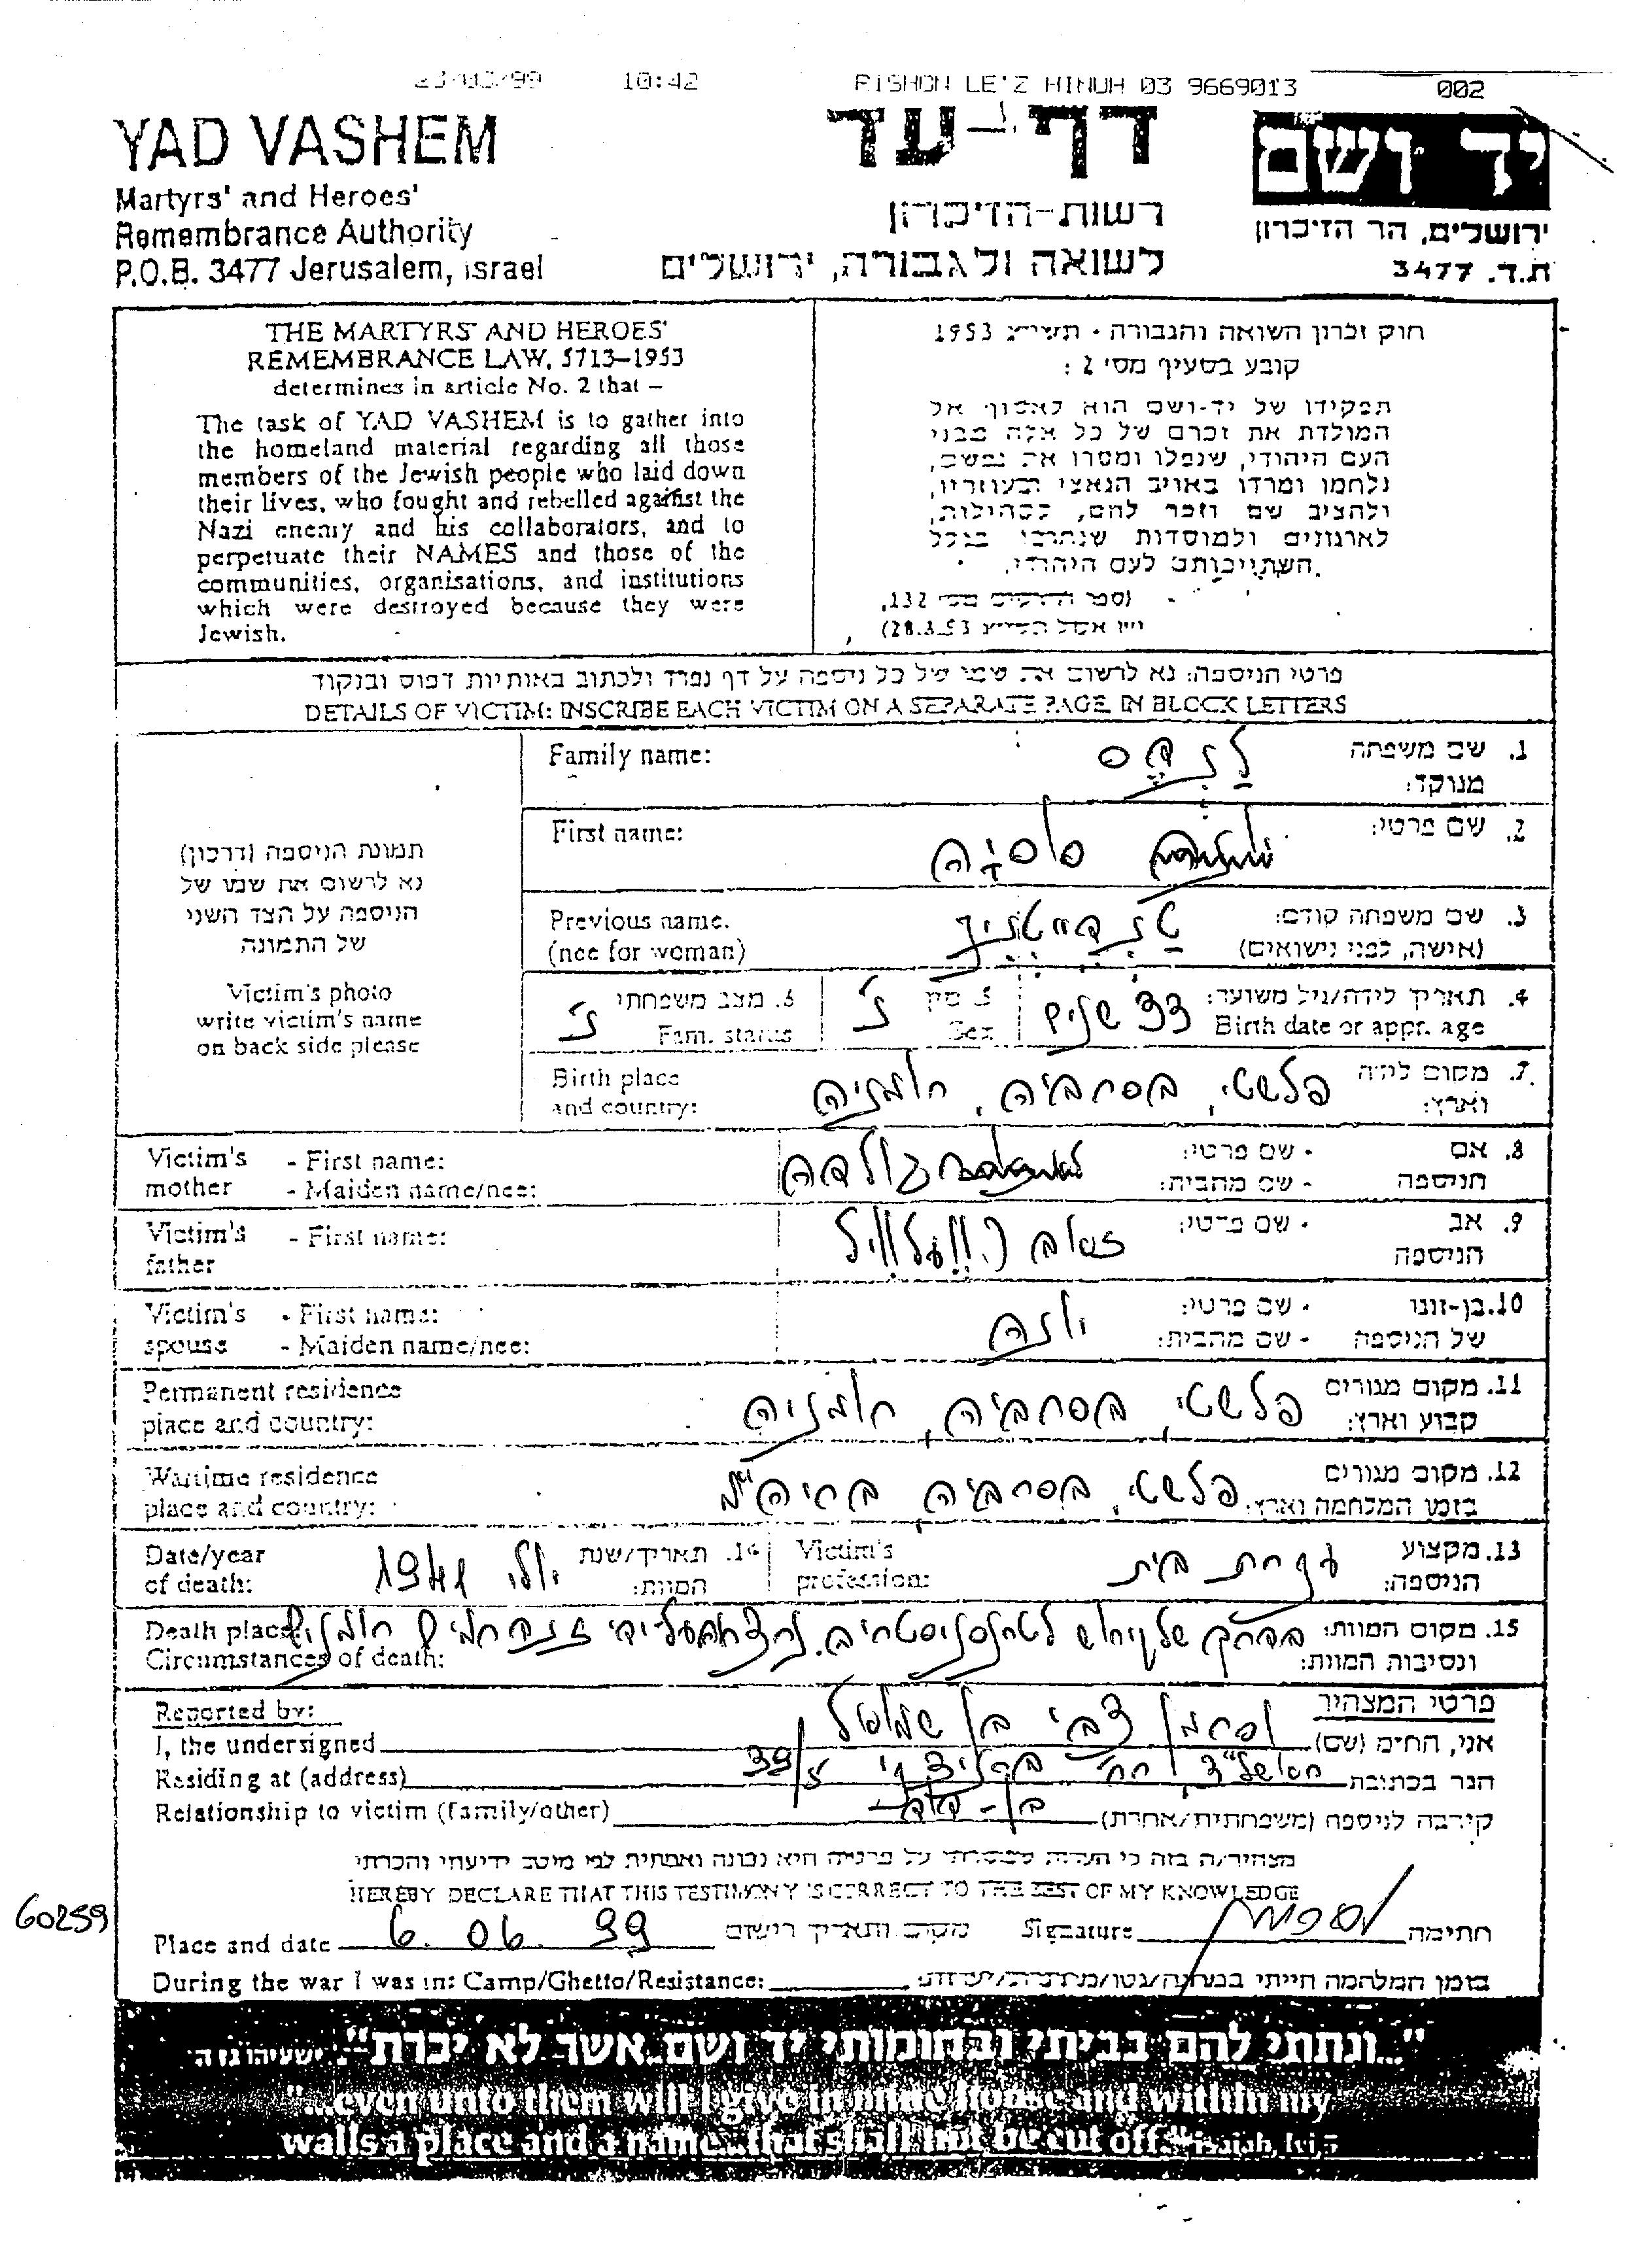 10:42 RISHON LE'Z HINUH 03 9669013 002
YAD VASHEM
Martyrs' and Heroes'
Remembrance Authority
P.O.B. 3477 Jerusalem, israel
דף-עד
רשות-הזיכרון
לשואה ולגבורה, ירושלים
יד ושם
ירושלים, הר הזיכרון
ת.ד. 3477
THE MARTYRS' AND HEROES'
REMEMBRANCE LAW, 5713–1953
determines in article No. 2 that –
The task of YAD VASHEM is to gather into
the homeland material regarding all those
members of the Jewish people who laid down
their lives, who fought and rebelled against the
Nazi enemy and his collaborators, and to
perpetuate their NAMES and those of the
communities, organisations, and institutions
which were destroyed because they were
Jewish.
חוק זכרון השואה והגבורה - תשי"ג 1953
קובע בסעיף מס' 2 :
תפקידו של יד-ושם הוא לאסוף אל
המולדת את זכרם של כל אלה מבני
העם היהודי, שנפלו ומסרו את נפשם,
נלחמו ומרדו באויב הנאצי ובעוזריו,
ולהציב שם וזכר להם, לקהילות,
לארגונים ולמוסדות שנחרבו בגלל
השתייכותם לעם היהודי.
(ספר החוקים מס' 132,
28.8.53)
פרטי הניספה: נא לרשום את שמו של כל ניספה על דף נפרד ולכתוב באותיות דפוס ובנקוד
DETAILS OF VICTIM: INSCRIBE EACH VICTIM ON A SEPARATE PAGE IN BLOCK LETTERS
תמונת הניספה (דרכון)
נא לרשום את שמו של
הניספה על הצד השני
של התמונה
Victim's photo
write victim's name
on back side please
Family name:
1. שם משפחה
מנוקד:
First name: סוסיה
2. שם פרטי:
Previous name.
(nee for woman)
3. שם משפחה קודם:
(אישה, לפני נישואים)
4. תאריך לידה/גיל משוער: 33 שנים
Birth date or appr. age
5. מין נ'
Sex
6. מצב משפחתי נ'
Fam. status
Birth place פלשטי, בסרביה, רומניה 7. מקום לידה
and country: וארץ:
Victim's - First name: - שם פרטי: 8. אם
mother - Maiden name/nee: - שם מהבית: הניספה
Victim's - First name: - שם פרטי: 9. אב
father הניספה
Victim's - First name: יונה - שם פרטי: 10. בן-זוגו
spouse - Maiden name/nee: - שם מהבית: של הניספה
Permanent residence פלשטי, בסרביה, רומניה 11. מקום מגורים
place and country: קבוע וארץ:
Wartime residence פלשטי, בסרביה, בריה"מ 12. מקום מגורים
place and country: בזמן המלחמה וארץ:
Date/year יולי 1941 14. תאריך/שנת
of death: המוות:
Victim's עקרת בית 13. מקצוע
profession: הניספה:
Death place בדרך לטרנסניסטריה. 15. מקום המוות:
Circumstances of death: ונסיבות המוות:
Reported by: פרטי המצהיר
I, the undersigned צבי בן שמואל אני, החי"מ (שם)
Residing at (address) 39/5 הגר בכתובת
Relationship to victim (family/other) בן-דוד קירבה לניספה (משפחתית/אחרת)
מצהיר/ה בזה כי העדות שמסרתי על פרטיה היא נכונה ואמתית לפי מיטב ידיעתי והכרתי
HEREBY DECLARE THAT THIS TESTIMONY IS CORRECT TO THE BEST OF MY KNOWLEDGE
60259
Place and date 6. 06. 99 מקום ותאריך רישום Signature חתימה
During the war I was in: Camp/Ghetto/Resistance: בזמן המלחמה הייתי
"...ונתתי להם בביתי ובחומותי יד ושם...אשר לא יכרת". ישעיהו נו ה
"...even unto them will I give in mine house and within my
walls a place and a name...that shall not be cut off." isaiah, lvi,5